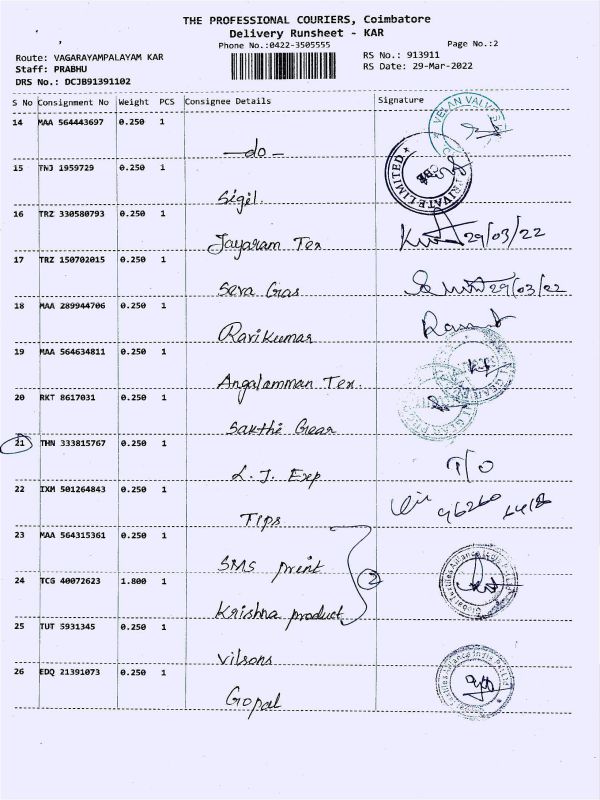 THE PROFESSIONAL COURIERS, Coimbatore
Delivery Runsheet - KAR
Phone No.:0422-3505555
Page No.:2
Route: VAGARAYAMPALAYAM KAR
RS No.: 913911
Staff: PRABHU
RS Date: 29-Mar-2022
DRS No.: DCJB91391102
S No Consignment No Weight PCS Consignee Details Signature
14 MAA 564443697 0.250 1
-do-
VELAN VALVES
15 TNJ 1959729 0.250 1
Sigil.
PRIVATE LIMITED
16 TRZ 330580793 0.250 1
Jayaram Tex
29/03/22
17 TRZ 150702015 0.250 1
Seva Gas
29/03/22
18 MAA 289944706 0.250 1
Ravikumar
19 MAA 564634811 0.250 1
Angalamman Tex.
20 RKT 8617031 0.250 1
Sakthi Gear
21 THN 333815767 0.250 1
L. J. Exp
T/O
22 IXM 501264843 0.250 1
Tips
96260
23 MAA 564315361 0.250 1
SMS print
2
24 TCG 40072623 1.800 1
Krishna product
25 TUT 5931345 0.250 1
Vilsons
26 EDQ 21391073 0.250 1
Gopal